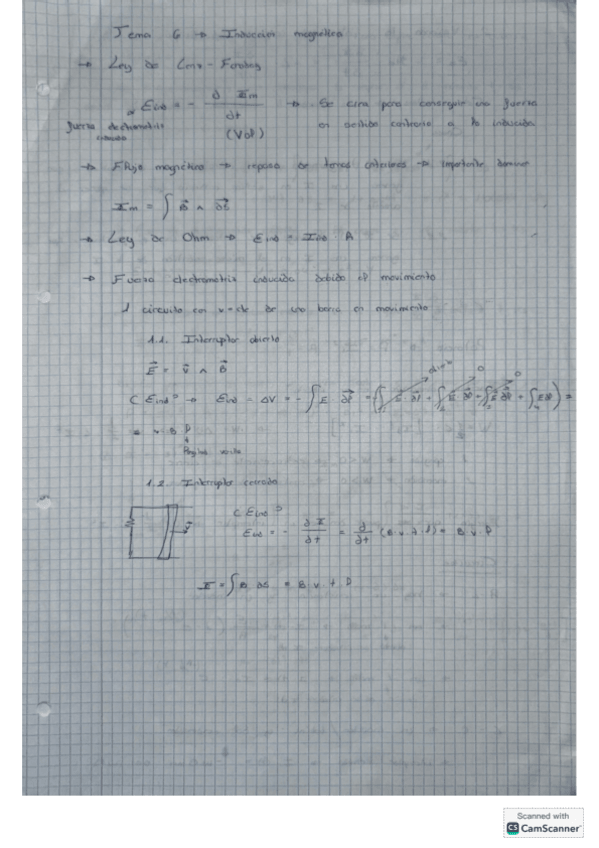 Tema 6 → Inducción magnética
→ Ley de Lenz - Faraday
Eind = - d Φm / dt → Se crea para conseguir una fuerza
fuerza electromotriz inducida (Vol) en sentido contrario a la inducida
→ Flujo magnético → repaso de temas anteriores → importante
Φm = ∫ B⃗ ∧ dS⃗
→ Ley de Ohm → Eind = Iind · R
→ Fuerza electromotriz inducida debido al movimiento
1 circuito con v=cte de una barra en movimiento
1.1. Interruptor abierto
E⃗ = v⃗ ∧ B⃗
¿Eind? → Eind = ΔV = - ∫ E dl⃗ =
= v · B l
1.2. Interruptor cerrado
¿Eind?
Eind = - dΦ / dt = d / dt (B · v · t · l) = B v l
Φ = ∫ B dS = B v t l
Scanned with
CS CamScanner